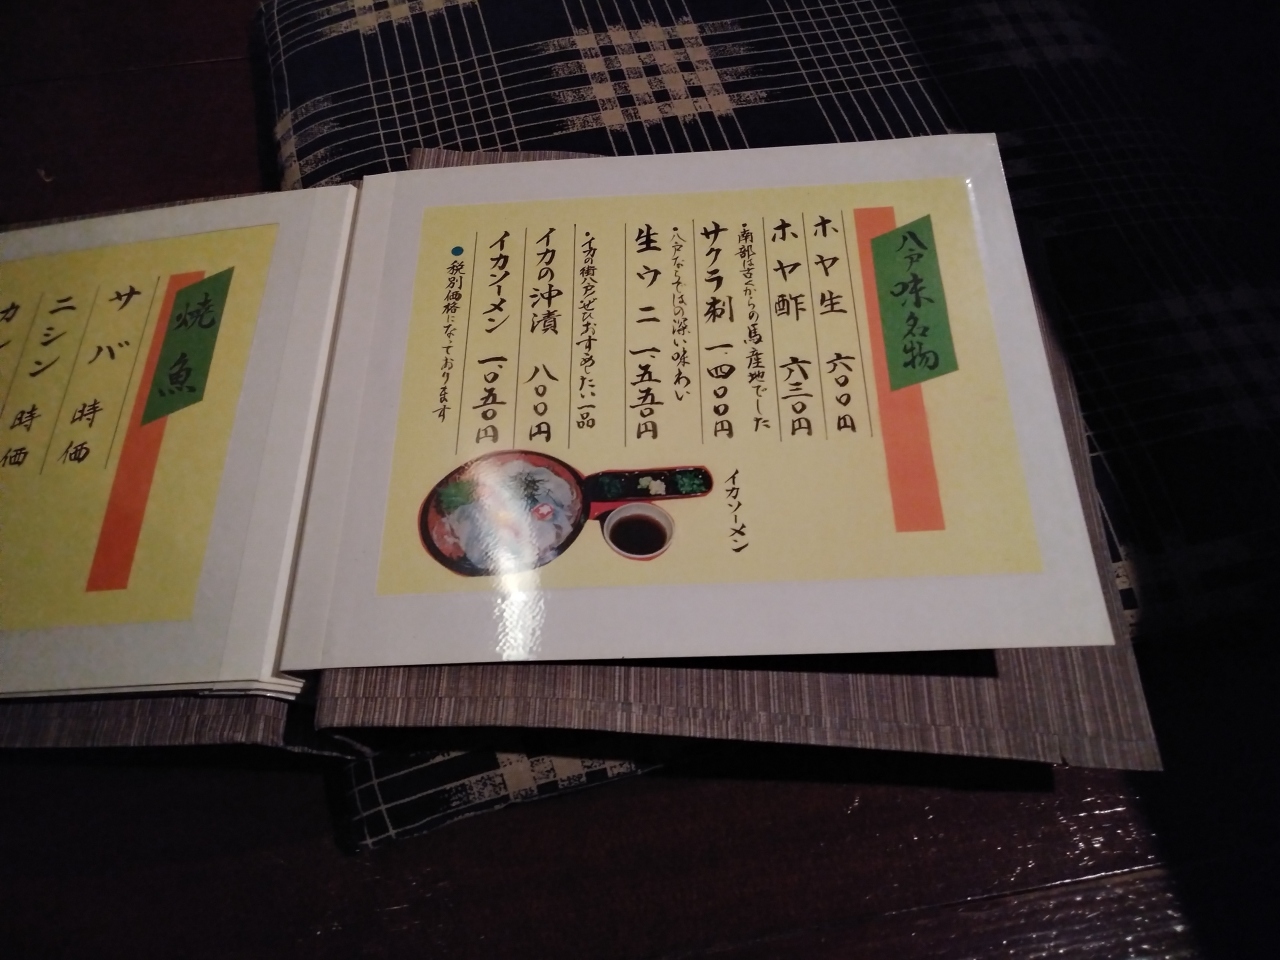 八戸味名物
ホヤ生 六〇〇円
ホヤ酢 六三〇円
・南部は古くからの馬産地でした
サクラ刺 一、四〇〇円
・八戸ならではの深い味わい
生ウニ 一、五五〇円
・イカの街八戸、ぜひおすすめしたい一品
イカの沖漬 八〇〇円
イカソーメン 一、〇五〇円
●税別価格になっております
イカソーメン
焼魚
サバ 時価
ニシン 時価
時価